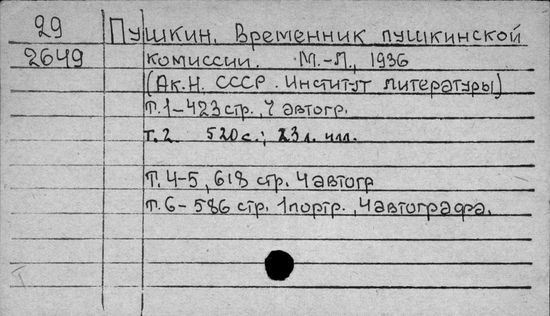 29 Пушкин. Временник пушкинской
2649 комиссии. М.-Л., 1936
(Ак.Н. СССР. Институт литературы)
Т.1-423 стр., 4 автогр.
Т.2. 520 с.; 23 л. илл.
Т.4-5, 618 стр. 4 автогр
Т.6-586 стр. 1 портр., 4 автографа.